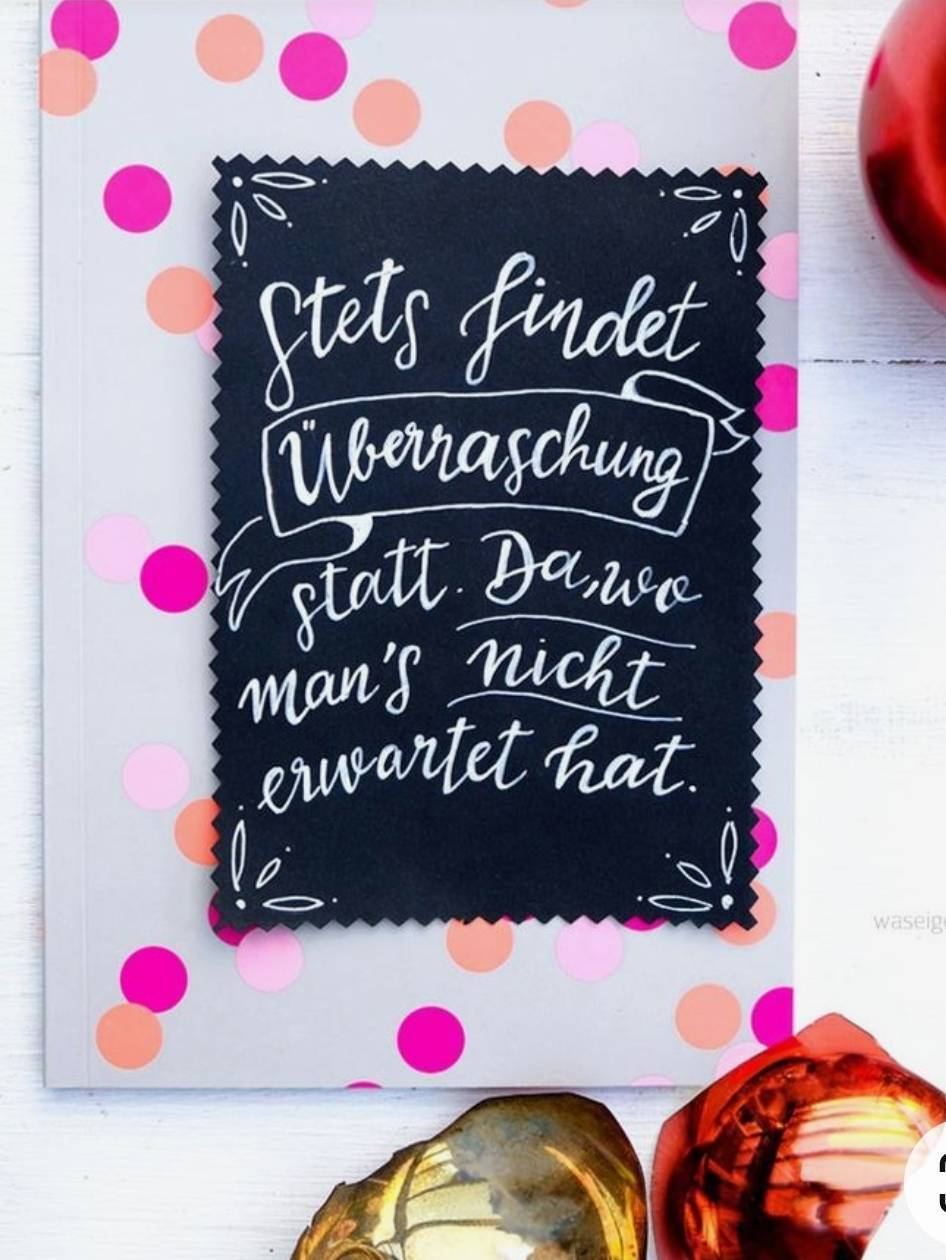 Stets findet
Überraschung
statt. Da, wo
man's nicht
erwartet hat.